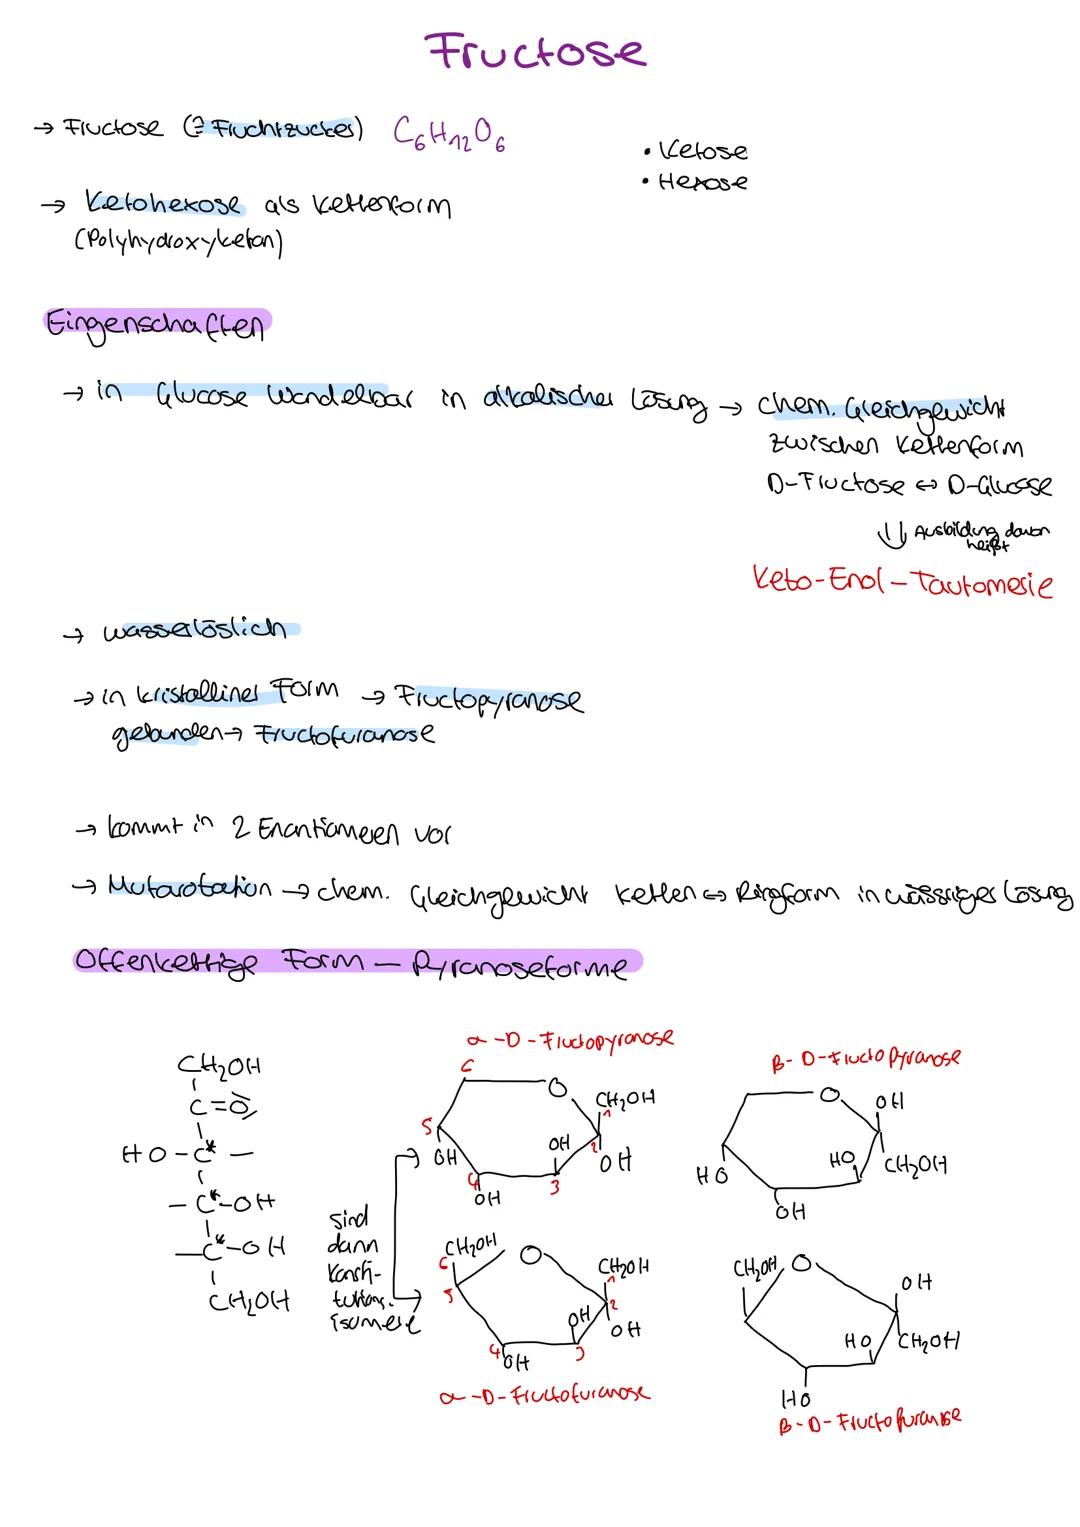 Fructose
→ Fructose (≙ Fruchtzucker) C₆H₁₂O₆
• Ketose
• Hexose
→ Ketohexose als Kettenform
(Polyhydroxyketon)
Eingenschaften
→ in Glucose Wandelbar in alkalischer Lösung → chem. Gleichgewicht
zwischen Kettenform
D-Fructose ↔ D-Glucose
⇓ Ausbildung davon
heißt
Keto-Enol-Tautomerie
→ wasserlöslich
→ in kristalliner Form → Fructopyranose
gebunden → Fructofuranose
→ kommt in 2 Enantiomeren vor
→ Mutarotation → chem. Gleichgewicht Ketten ↔ Ringform in wässriger Lösung
Offenkettige Form – Pyranoseforme
CH₂OH
C=O
HO-C*-
-C*-OH
-C*-OH
CH₂OH
sind
dann
Konsti-
tutions-
isomere
α-D-Fructopyranose
6
O
CH₂OH
1
5
OH
OH
2
OH
4
OH
3
β-D-Fructopyranose
O
OH
HO
HO
CH₂OH
OH
CH₂OH
6
O
CH₂OH
1
5
2
OH
OH
4
OH
3
α-D-Fructofuranose
CH₂OH
O
OH
HO
CH₂OH
HO
β-D-Fructofuranose